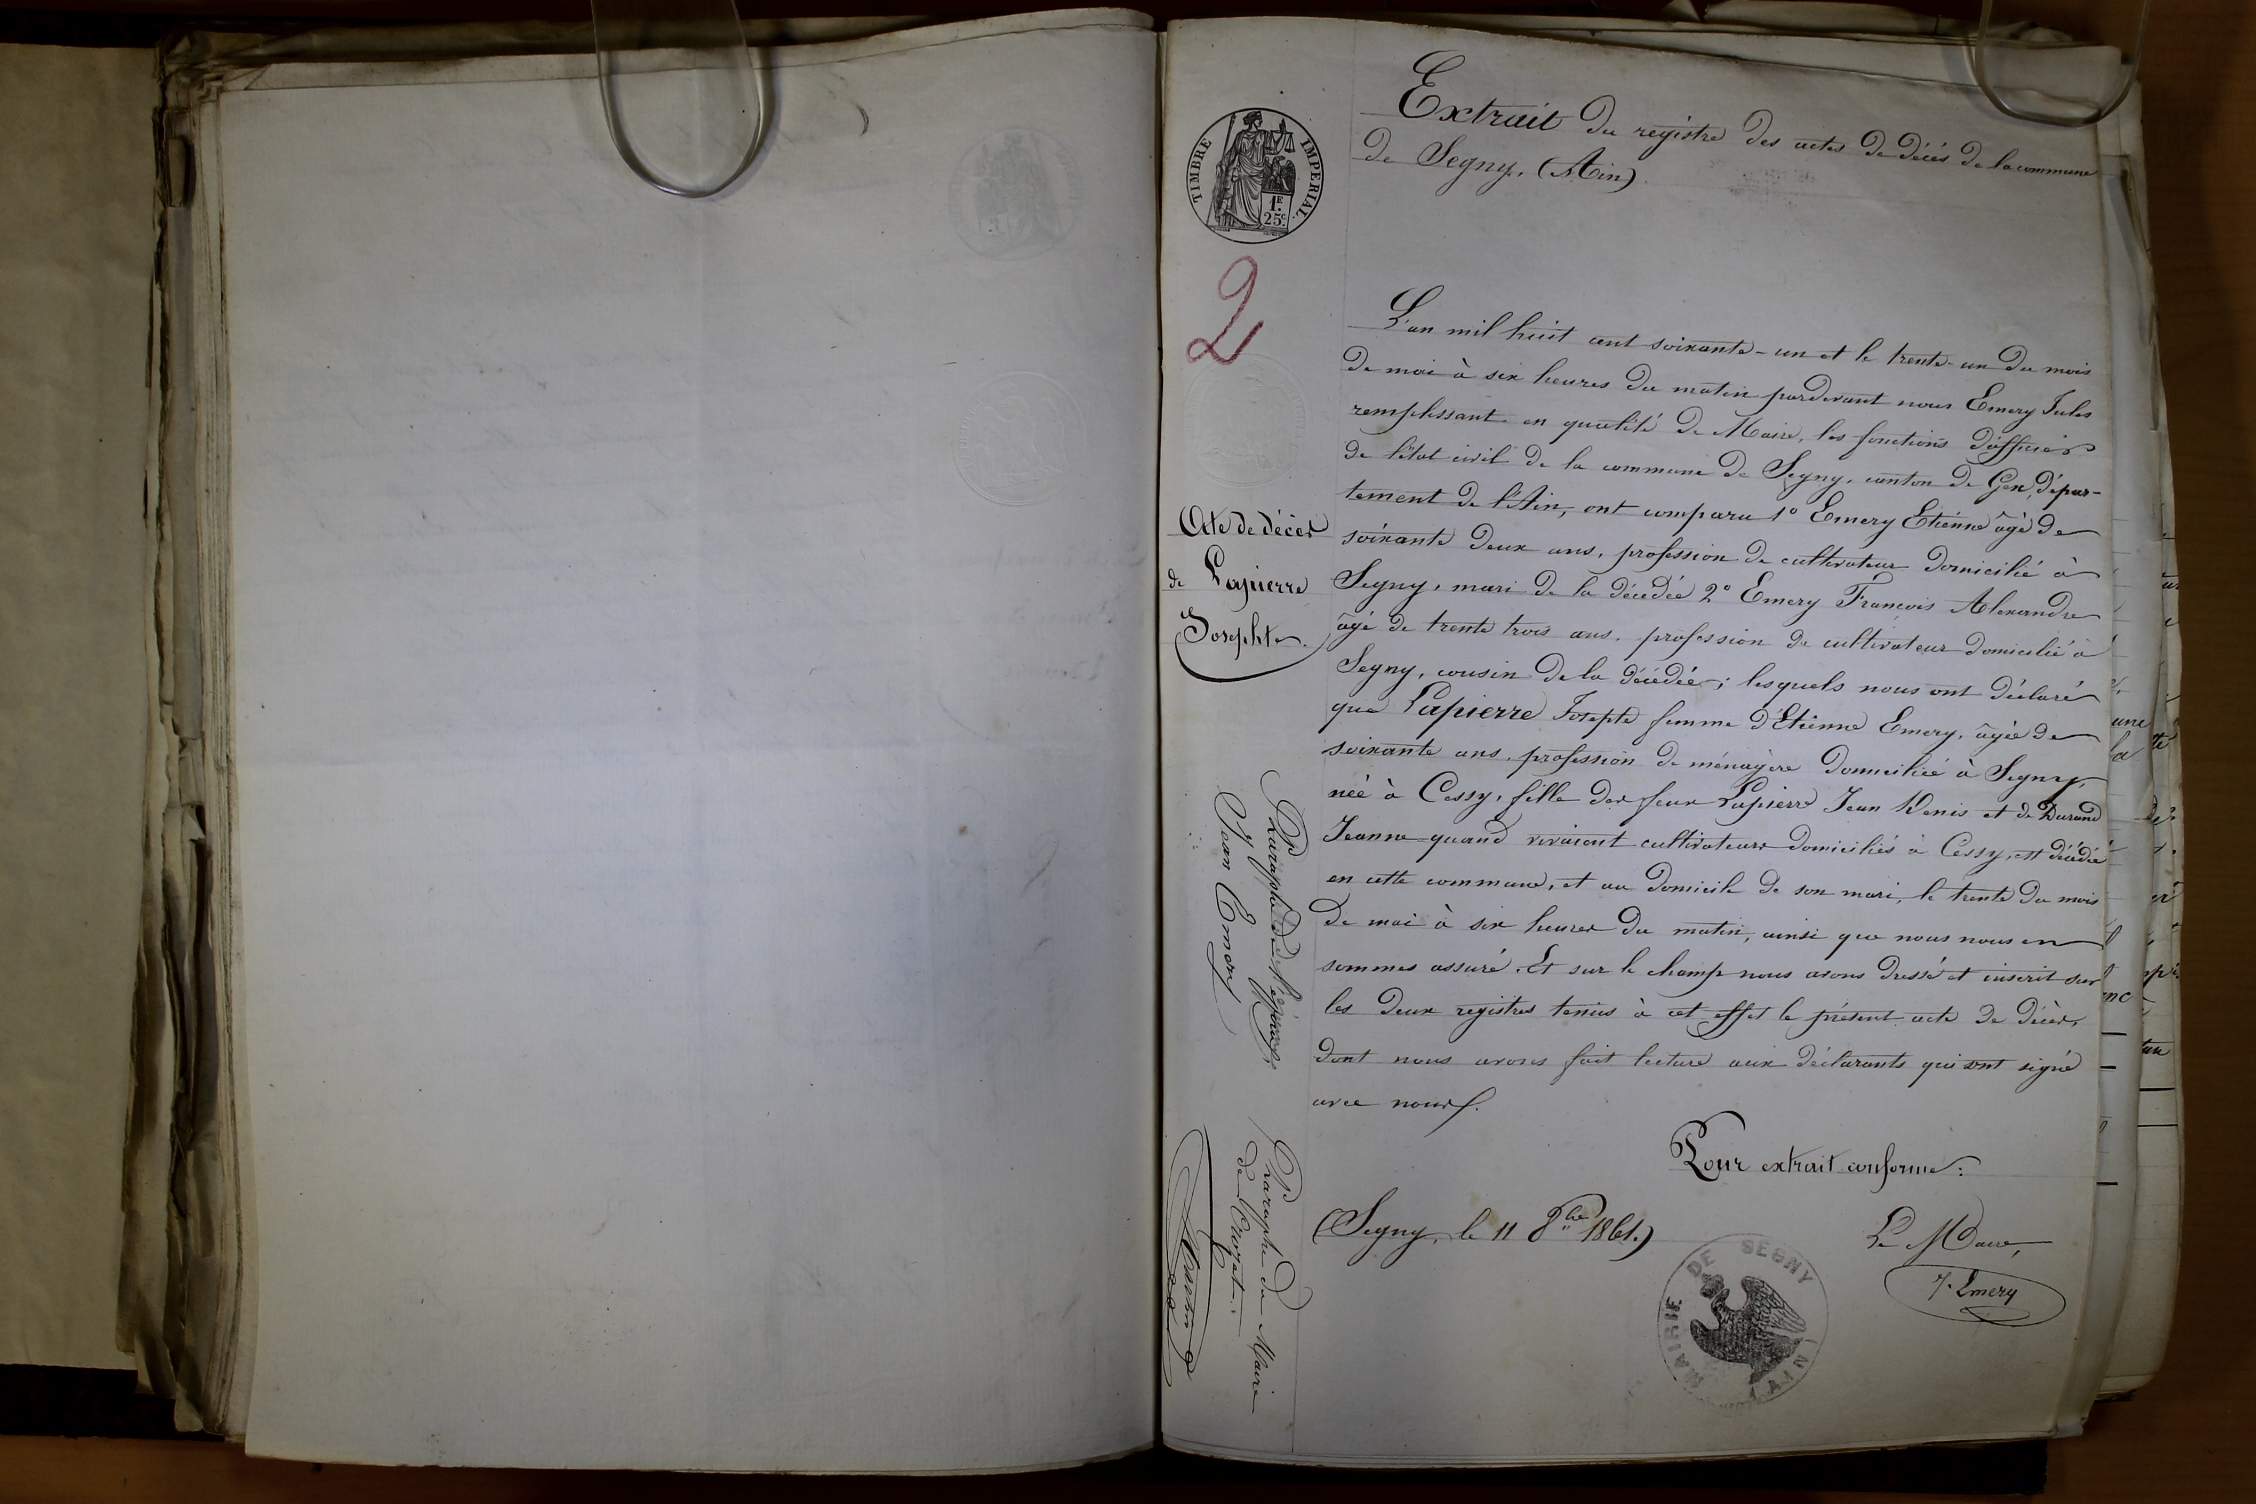 Extrait du registre des actes de décès de la commune
de Segny. (Ain)
TIMBRE IMPERIAL.
1F.
25c.
2
L'an mil huit cent soixante-un et le trente-un du mois
de mai à six heures du matin pardevant nous Emery Jules
remplissant en qualité de Maire, les fonctions d'officier
de l'état civil de la commune de Segny, canton de Gex, dépar-
tement de l'Ain, ont comparu 1o Emery Etienne âgé de
soixante deux ans, profession de cultivateur domicilié à
Segny, mari de la décédée 2o Emery François Alexandre
âgé de trente trois ans, profession de cultivateur domicilié à
Segny, cousin de la décédée; lesquels nous ont déclaré
que Lapierre Josephte femme d'Etienne Emery, âgée de
soixante ans, profession de ménagère domiciliée à Segny,
née à Cessy, fille des feux Lapierre Jean Denis et de Durand
Jeanne quand vivaient cultivateurs domiciliés à Cessy, est décédée
en cette commune, et au domicile de son mari, le trente du mois
de mai à six heures du matin, ainsi que nous nous en
sommes assuré. Et sur le champ nous avons dressé et inscrit sur
les deux registres tenus à cet effet le présent acte de décès,
dont nous avons fait lecture aux déclarants qui ont signé
avec nous.
Acte de décès
de Lapierre
Josephte.
Paraphe de
Jean Emery
Paraphe du Maire
de Crozet:
Pour extrait conforme:
(Segny, le 11 8bre 1861.)
Le Maire,
J. Emery
MAIRIE DE SEGNY (AIN)
une
la